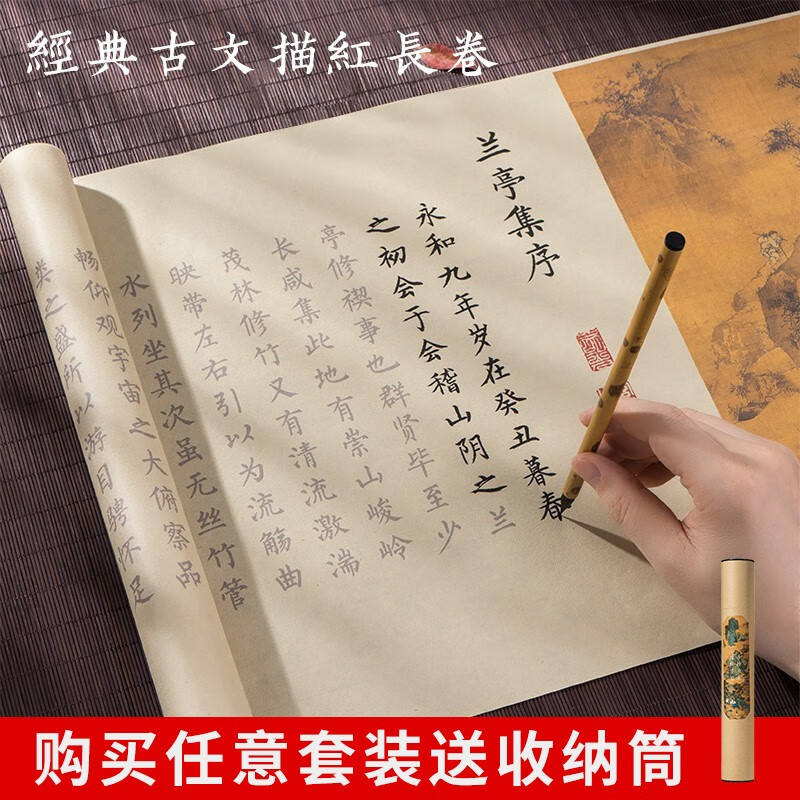 經典古文描紅長卷
兰亭集序
永和九年岁在癸丑暮春
之初会于会稽山阴之兰
亭修禊事也群贤毕至少
长咸集此地有崇山峻岭
茂林修竹又有清流激湍
映带左右引以为流觞曲
水列坐其次虽无丝竹管
畅仰观宇宙之大俯察品
类之盛所以游目骋怀足
购买任意套装送收纳筒